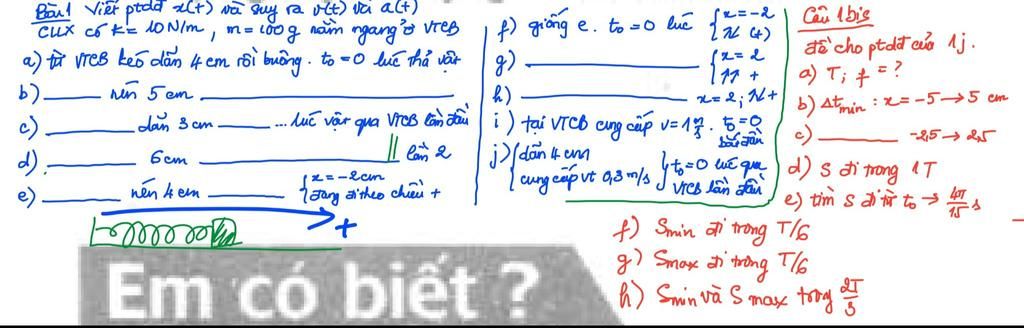 Bài 1 Viết ptdđ x(t) và suy ra v(t) và a(t)
CLLX có k = 10 N/m, m = 100 g nằm ngang ở VTCB
a) từ VTCB kéo dãn 4 cm rồi buông. t₀ = 0 lúc thả vật
b) ___ nén 5 cm ___
c) ___ dãn 3 cm ___ ... lúc vật qua VTCB lần đầu
d) ___ 6 cm ___ || lần 2
e) ___ nén 4 cm ___ { x = -2 cm
đang đi theo chiều +
+
f) giống e. t₀ = 0 lúc { x = -2
↑↓ (+)
g) ___ { x = 2
↑↑ +
h) ___ x = 2; ↑↓ +
i) tại VTCB cung cấp v = 1 m/s. t₀ = 0
bắt đầu
j) { dãn 4 cm
cung cấp vt 0,3 m/s } t₀ = 0 lúc qua
VTCB lần đầu
Câu 1 bis
đề cho ptdđ của 1j.
a) T; f = ?
b) Δt min : x = -5 → 5 cm
c) ___ -2,5 → 2,5
d) S đi trong 1T
e) tìm S đi từ t₀ → 4π/15 s
f) Smin đi trong T/6
g) Smax đi trong T/6
h) Smin và Smax trong 2T/3
Em có biết ?